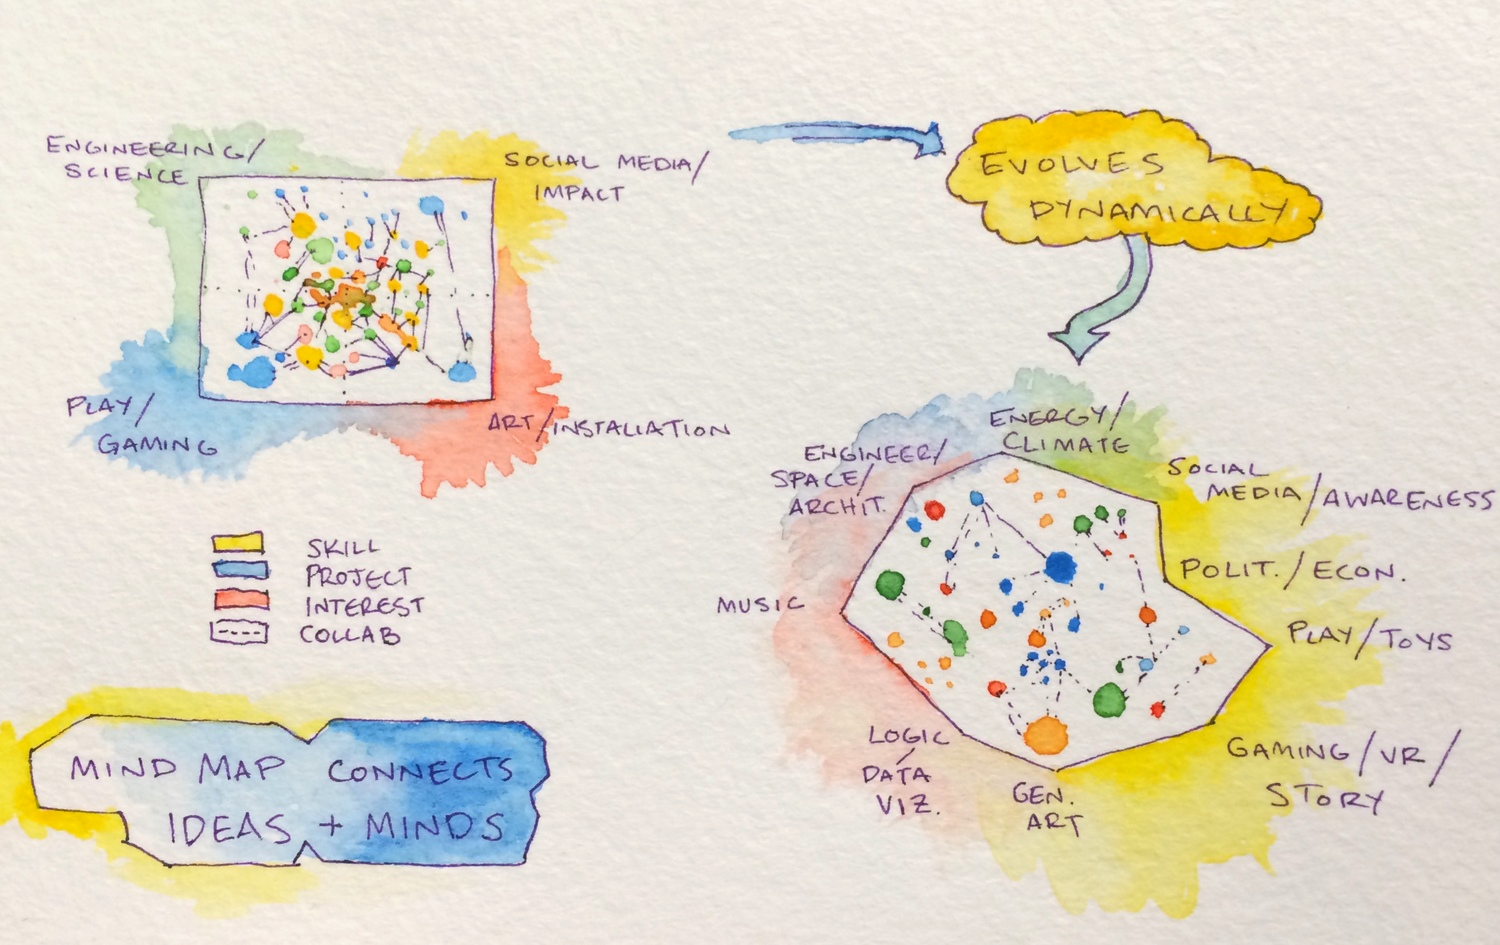 ENGINEERING/
SCIENCE
SOCIAL MEDIA/
IMPACT
PLAY/
GAMING
ART/INSTALLATION
SKILL
PROJECT
INTEREST
COLLAB
MIND MAP CONNECTS
IDEAS + MINDS
EVOLVES
DYNAMICALLY
ENERGY/
CLIMATE
ENGINEER/
SPACE/
ARCHIT.
SOCIAL
MEDIA/AWARENESS
POLIT./ECON.
MUSIC
PLAY/TOYS
LOGIC
DATA
VIZ.
GEN.
ART
GAMING/VR/
STORY